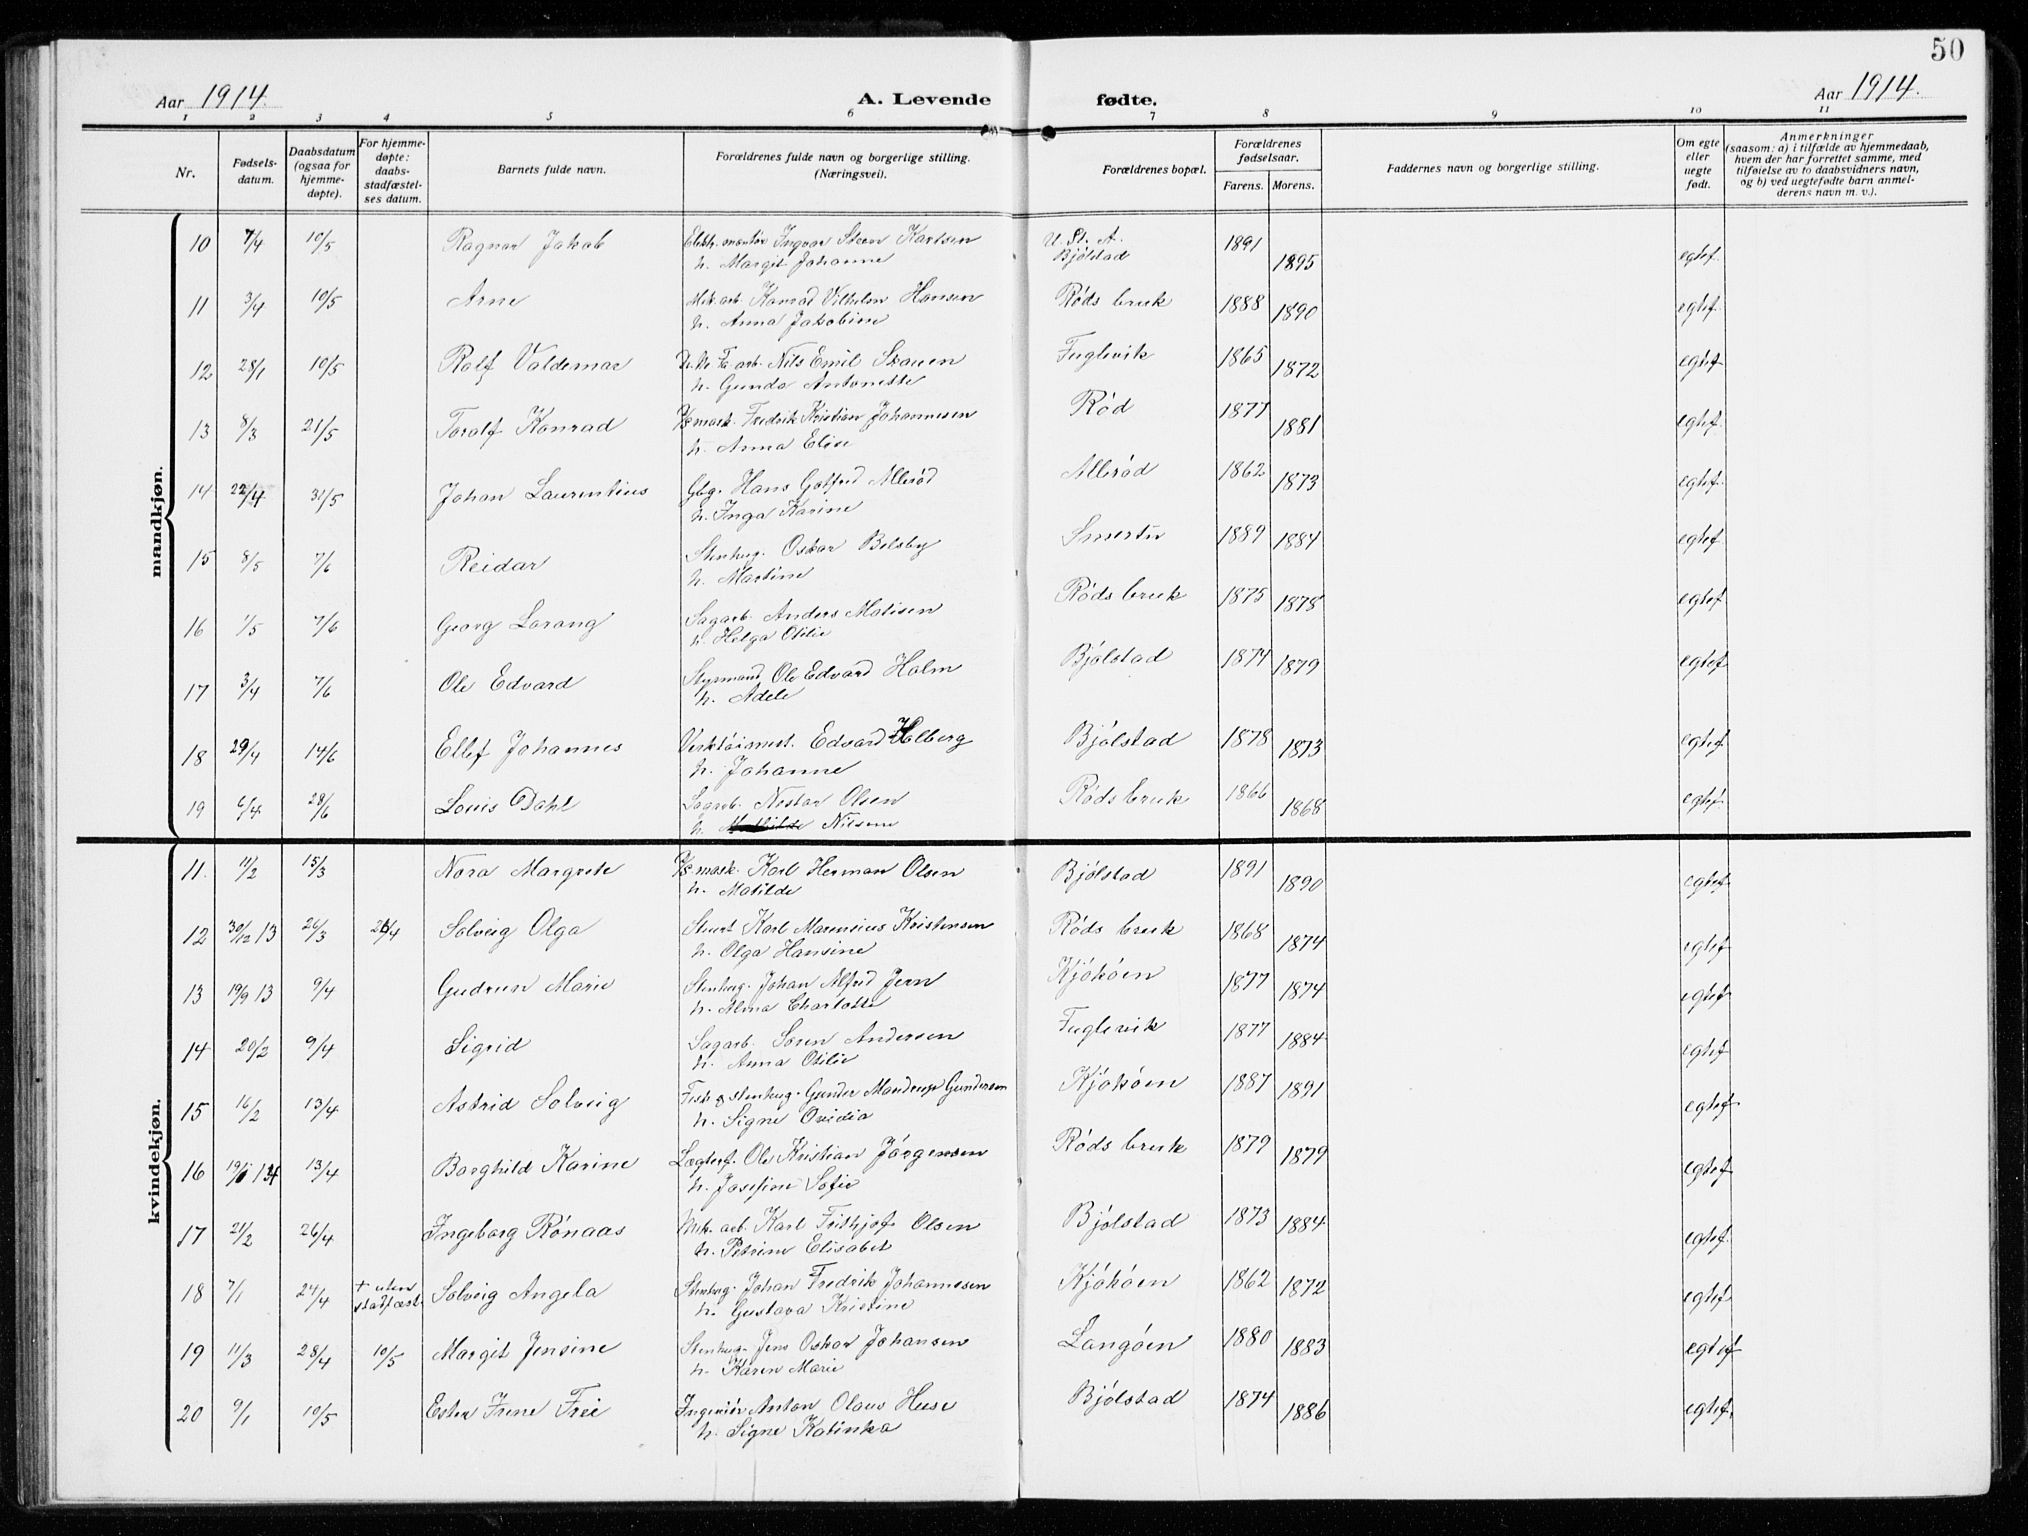 50
Aar 1914.
A. Levende fødte.
Aar 1914.
1 2 3 4 5 6 7 8 9 10 11
Nr.
Fødsels-
datum.
Daabsdatum
(ogsaa for
hjemme-
døpte).
For hjemme-
døpte:
daabs-
stadfæstel-
ses datum.
Barnets fulde navn.
Forældrenes fulde navn og borgerlige stilling.
(Næringsvei).
Forældrenes bopæl.
Forældrenes
fødselsaar.
Farens. Morens.
Faddernes navn og borgerlige stilling.
Om egte
eller
uegte
født.
Anmerkninger
(saasom: a) i tilfælde av hjemmedaab,
hvem der har forrettet samme, med
tilføielse av to daabsvidners navn,
og b) ved uegtefødte barn anmel-
derens navn m. v.).
mandkjøn.
10 7/4 10/5 Ragnar Jakob Elektr. montør Ingvar Steen Karlsen U. St. A. 1891 egtef.
h. Margit Johanne Bjølstad 1895
11 3/4 10/5 Arne Mek. arb. Konrad Vilhelm Hansen Røds bruk 1888 egtef.
h. Anna Jakobine 1890
12 28/1 10/5 Rolf Valdemar Fa. arb. Nils Emil Skauen Fuglevik 1865 egtef.
h. Gunda Antonette 1872
13 8/3 21/5 Toralf Konrad D/S mask. Fredrik Kristian Johannesen Rød 1877 egtef.
h. Anna Elise 1881
14 22/4 31/5 Johan Laurentius Gbg. Hans Gotfred Allerød Allerød 1862 egtef.
h. Inga Karine 1873
15 8/5 7/6 Reidar Stenhug. Oskar Belsby Smertu 1889 egtef.
h. Martine 1884
16 1/5 7/6 Georg Lorang Sagarb. Anders Matisen Røds bruk 1875 egtef.
h. Helga Otilie 1878
17 3/4 7/6 Ole Edvard Styrmand Ole Edvard Holm Bjølstad 1874 egtef.
h. Adele 1879
18 29/4 14/6 Ellef Johannes Verktøimest. Edvard Holberg Bjølstad 1878 egtef.
h. Johanne 1873
19 6/4 28/6 Louis Dahl Sagarb. Nestor Olsen Røds bruk 1866 egtef.
h. Nilsine 1868
kvindekjøn.
11. 11/2 15/3 Nora Margrete D/S mask. Karl Herman Olsen Bjølstad 1891 egtef.
h. Matilde 1890
12 30/12 13 26/3 26/4 Solveig Olga Stuert Karl Marensius Kristensen Røds bruk 1868 egtef.
h. Olga Hansine 1874
13 19/9 13 9/4 Gudrun Marie Stenhug. Johan Alfred Jern Kjøkøen 1877 egtef.
h. Alma Charlotte 1874
14 20/2 9/4 Sigrid Sagarb. Søren Andersen Fuglevik 1877 egtef.
h. Anna Otilie 1884
15 16/2 13/4 Astrid Solveig Fisk. & stenhug. Gunder Mandrup Gundersen Kjøkøen 1887 egtef.
h. Signe Ovidia 1891
16 19/1 14 13/4 Borghild Karine Lægterf. Ole Kristian Jørgensen Røds bruk 1879 egtef.
h. Josefine Sofie 1879
17 21/2 26/4 Ingeborg Rønaas Mek. arb. Karl Frithjof Olsen Bjølstad 1873 egtef.
h. Petrine Elisabet 1884
18 7/1 24/4 + uten Solveig Angela Stenhug. Johan Fredrik Johannesen Kjøkøen 1862 egtef.
stadfæst. h. Gustava Kristine 1872
19 11/3 28/4 10/5 Margit Jensine Stenhug. Jens Oskar Johansen Langøen 1880 egtef
h. Karen Marie 1883
20 9/1 10/5 Ester Irene Frei Ingeniør Anton Olaus Huse Bjølstad 1874 egtef.
h. Signe Katinka 1886